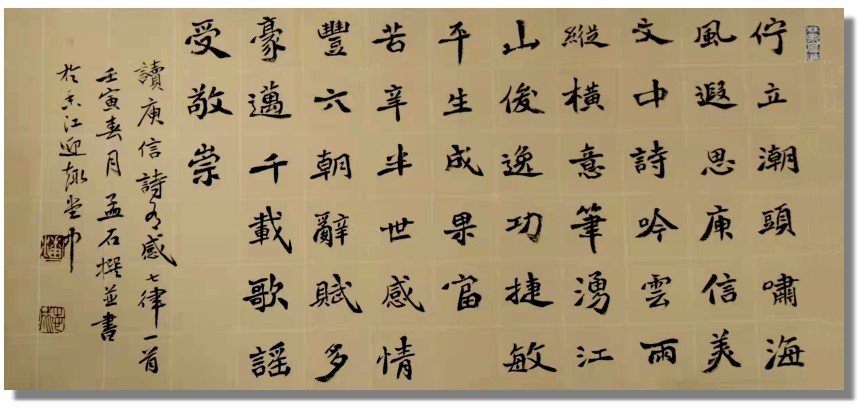 佇立潮頭嘯海
風遐思庾信美
文中詩吟雲雨
縱橫意筆湧江
山俊逸功捷敏
平生成果富
苦辛半世感情
豐六朝辭賦多
豪邁千載歌謡
受敬崇
讀庾信詩有感七律一首
壬寅春月孟石撰並書
於香江迎堂中